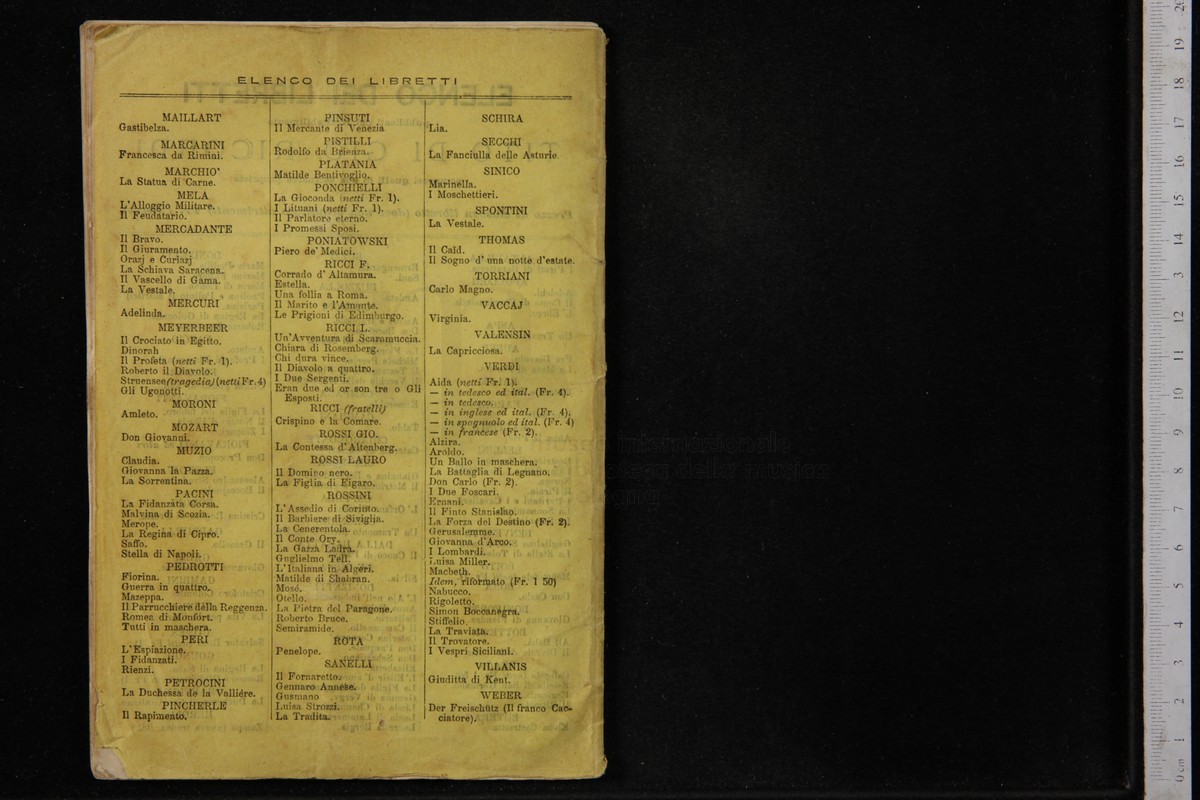 ELENCO DEI LIBRETTI
MAILLART
Gastibelza.
MARCARINI
Francesca da Rimini.
MARCHIO'
La Statua di Carne.
MELA
L'Alloggio Militare.
Il Feudatario.
MERCADANTE
Il Bravo.
Il Giuramento.
Orazj e Curiazj
La Schiava Saracena.
Il Vascello di Gama.
La Vestale.
MERCURI
Adelinda.
MEYERBEER
Il Crociato in Egitto.
Dinorah
Il Profeta (netti Fr. 1).
Roberto il Diavolo.
Struensee (tragedia) (netti Fr. 4)
Gli Ugonotti.
MORONI
Amleto.
MOZART
Don Giovanni.
MUZIO
Claudia.
Giovanna la Pazza.
La Sorrentina.
PACINI
La Fidanzata Corsa.
Malvina di Scozia.
Merope.
La Regina di Cipro.
Saffo.
Stella di Napoli.
PEDROTTI
Fiorina.
Guerra in quattro.
Mazeppa.
Il Parrucchiere della Reggenza.
Romea di Monfort.
Tutti in maschera.
PERI
L'Espiazione.
I Fidanzati.
Rienzi.
PETROCINI
La Duchessa de la Vallière.
PINCHERLE
Il Rapimento.
PINSUTI
Il Mercante di Venezia
PISTILLI
Rodolfo da Brienza.
PLATANIA
Matilde Bentivoglio.
PONCHIELLI
La Gioconda (netti Fr. 1).
I Lituani (netti Fr. 1).
Il Parlatore eterno.
I Promessi Sposi.
PONIATOWSKI
Piero de' Medici.
RICCI F.
Corrado d' Altamura.
Estella.
Una follia a Roma.
Il Marito e l'Amante.
Le Prigioni di Edimburgo.
RICCI L.
Un'Avventura di Scaramuccia.
Chiara di Rosemberg.
Chi dura vince.
Il Diavolo a quattro.
I Due Sergenti.
Eran due ed or son tre o Gli
Esposti.
RICCI (fratelli)
Crispino e la Comare.
ROSSI GIO.
La Contessa d'Altenberg.
ROSSI LAURO
Il Domino nero.
La Figlia di Figaro.
ROSSINI
L'Assedio di Corinto.
Il Barbiere di Siviglia.
La Cenerentola.
Il Conte Ory.
La Gazza Ladra.
Guglielmo Tell.
L'Italiana in Algeri.
Matilde di Shabran.
Mosè.
Otello.
La Pietra del Paragone.
Roberto Bruce.
Semiramide.
ROTA
Penelope.
SANELLI
Il Fornaretto.
Gennaro Annese.
Gusmano
Luisa Strozzi.
La Tradita.
SCHIRA
Lia.
SECCHI
La Fanciulla delle Asturie.
SINICO
Marinella.
I Moschettieri.
SPONTINI
La Vestale.
THOMAS
Il Caïd.
Il Sogno d' una notte d'estate.
TORRIANI
Carlo Magno.
VACCAJ
Virginia.
VALENSIN
La Capricciosa.
VERDI
Aida (netti Fr. 1).
— in tedesco ed ital. (Fr. 4).
— in tedesco.
— in inglese ed ital. (Fr. 4).
— in spagnuolo ed ital. (Fr. 4)
— in francese (Fr. 2).
Alzira.
Aroldo.
Un Ballo in maschera.
La Battaglia di Legnano.
Don Carlo (Fr. 2).
I Due Foscari.
Ernani.
Il Finto Stanislao.
La Forza del Destino (Fr. 2).
Gerusalemme.
Giovanna d'Arco.
I Lombardi.
Luisa Miller.
Macbeth.
Idem, riformato (Fr. 1 50)
Nabucco.
Rigoletto.
Simon Boccanegra.
Stiffelio.
La Traviata.
Il Trovatore.
I Vespri Siciliani.
VILLANIS
Giuditta di Kent.
WEBER
Der Freischütz (Il franco Cac-
ciatore).
0 cm 1 2 3 4 5 6 7 8 9 10 11 12 13 14 15 16 17 18 19 20